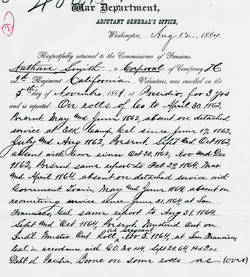 War Department,
ADJUTANT GENERAL'S OFFICE,
Washington, Aug 12, 1884
Respectfully returned to the Commissioner of Pensions.
Nathan Smith, a Corporal of Company
3d Regiment California Volunteers, was enrolled on the
5th day of November, 1861, at Presidio, for 3 yrs
and is reported: On rolls of Co to April 30, 1862,
Present. May and June 1862, absent on
detached service at Camp Cal since June 17, 1862
July and Aug 1862, Present. Sept and Oct 1862,
absent since Oct 20, 1862, Nov and Dec
1862, Present same report to Feb 29, 1864. Mar
and April 1864, absent on detached service with
May and June 1864, absent on
recruiting service since June 21, 1864, at San
Francisco, Cal same report to Aug 31, 1864
Sept and Oct 1864, Present. Mustered out on
Roll 5, 1864, at San Francisco
Cal in accordance with
Dept of Pacific Borne on some rolls as